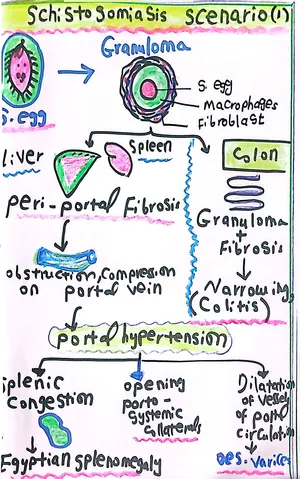 Schistosomiasis scenario(1)
Granuloma
S. egg
S. egg
macrophages
Fibroblast
liver
Spleen
Colon
peri-portal Fibrosis
Granuloma
+
Fibrosis
obstruction, Compression
on portal vein
Narrowing
(Colitis)
portal hypertension
splenic
Congestion
opening
porto-
systemic
Collaterals
Dilatation
of vessels
of portal
circulation
Egyptian splenomegaly
oes. varices